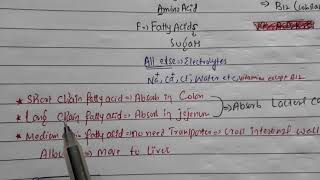 Amino Acid
B12 (
F → Fatty Acids
Sugars
All else → Electrolytes
Na⁺, Ca⁺, Cl⁻, Water etc, vitamins except B12
* Short Chain fatty acid → Absorb in Colon
Absorb Lacteal Ca
* Long Chain fatty acid → Absorb in jejunum
* Medium fatty acid → no need Transporter → Cross intestinal wall
→ move to liver